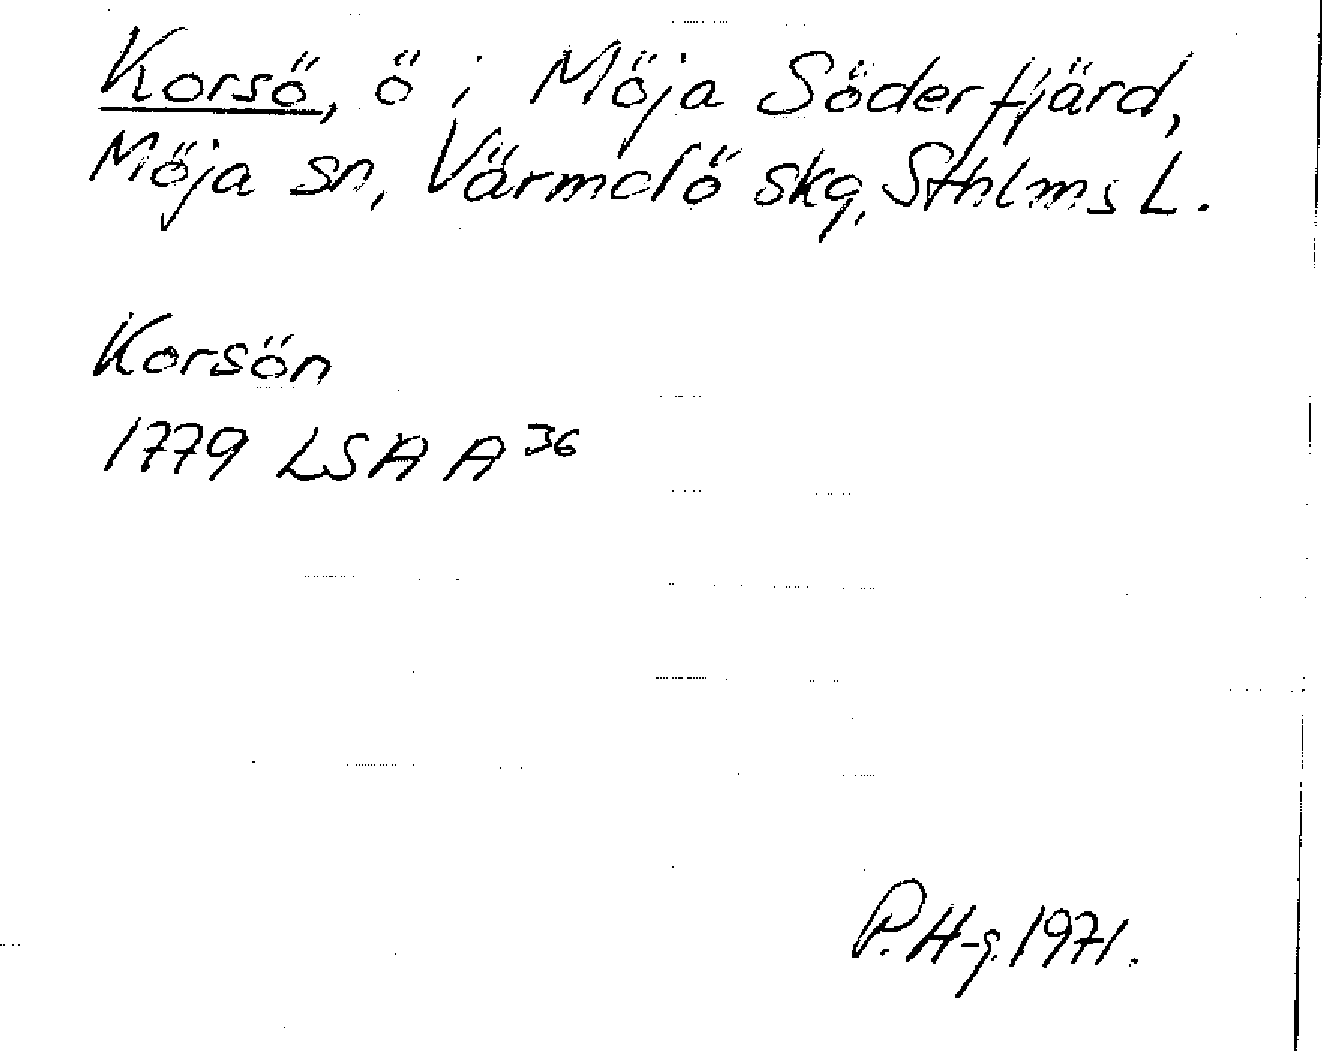 Korsö, ö i Möja Söderfjärd,
Möja sn, Värmdö skg, Sthlms L.
Korsön
1779 LSA A 36
P. H-g. 1971.